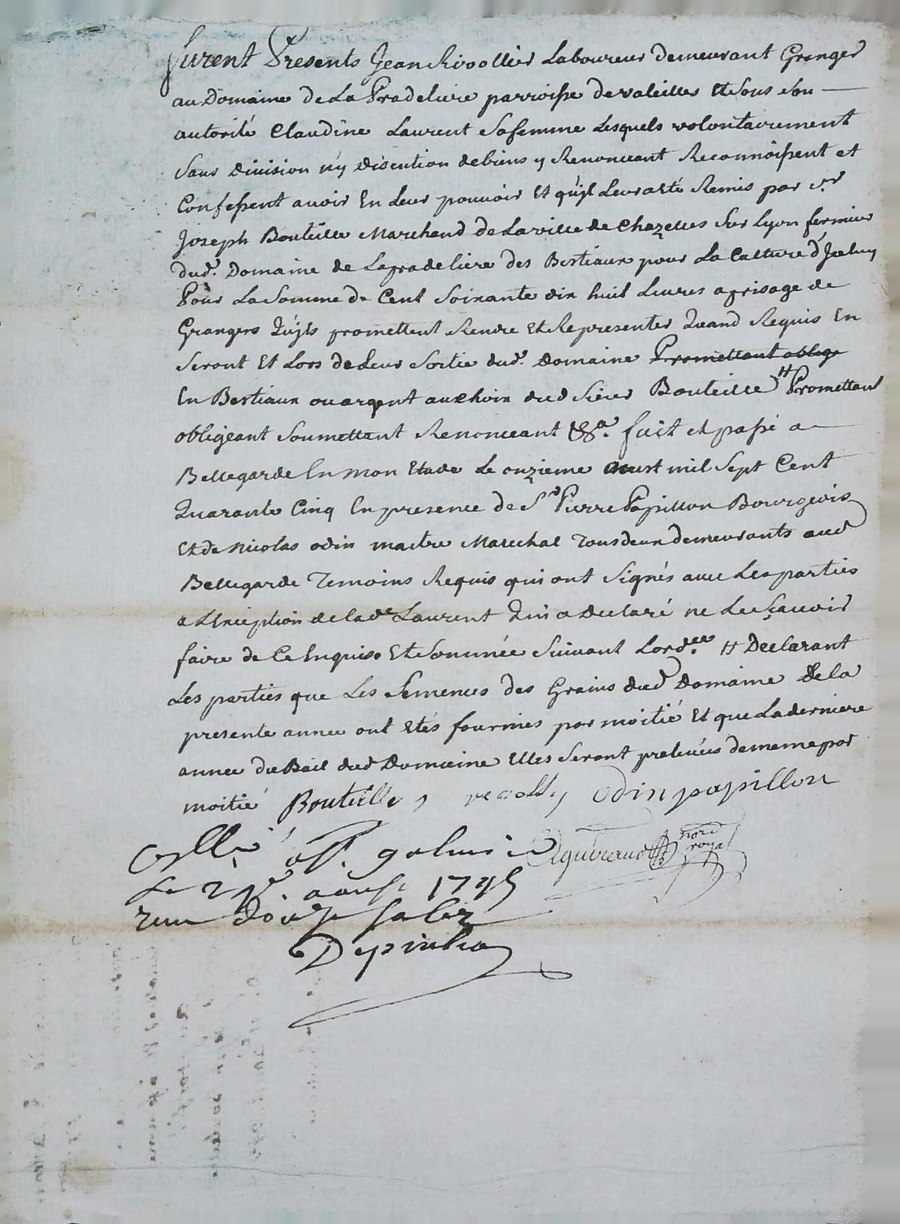 furent Presents Jean Rivollier Laboureur demeurant Granger
au Domaine de La Pradeliere parroisse de valeilles Et Sous Son
autorité Claudine Laurent Safemme Lesquels volontairement
Sans division n'y discution debiens y Renonceant Reconnoissent et
Confessent avoir En Leur pouvoir Et qu'jl Leura été Remis par Sr
Joseph Bouteille Marchand de Laville de Chazelles Sur Lyon fermier
dud. Domaine de Lapradeliere des Bestiaux pour La Culture d'Jceluy
Pour La Somme de Cent Soixante dix huit Livres aprisage de
Grangers Qu'jls promettent Rendre Et Representer Quand Requis En
Seront Et Lors de Leur Sortie dud. Domaine Promettant oblige
En Bestiaux ou argent auchoix dud Sieur Bouteille # Promettant
obligeant Soumettant Renonceant &a. fait et passé a
Bellegarde En mon Etude Le onzieme aoust mil Sept Cent
Quarante Cinq En presence de Sr Pierre Papillon Bourgeois
Et de Nicolas odin maitre Marechal Tous deux demeurants aud
Bellegarde Temoins Requis qui ont Signés avec Les parties
a L'Exception de lade Laurent Qui a declaré ne Le Sçavoir
faire de Ce Enquise Et Sommée Suivant Lordce # Declarant
Les parties que Les Semences des Grains dud Domaine de la
presente année ont Etés fournies par moitié Et que La derniere
année du Bail dud Domaine Elles Seront prelevées dememe par
moitié Bouteille odin papillon
not royal
Le aoust 1745